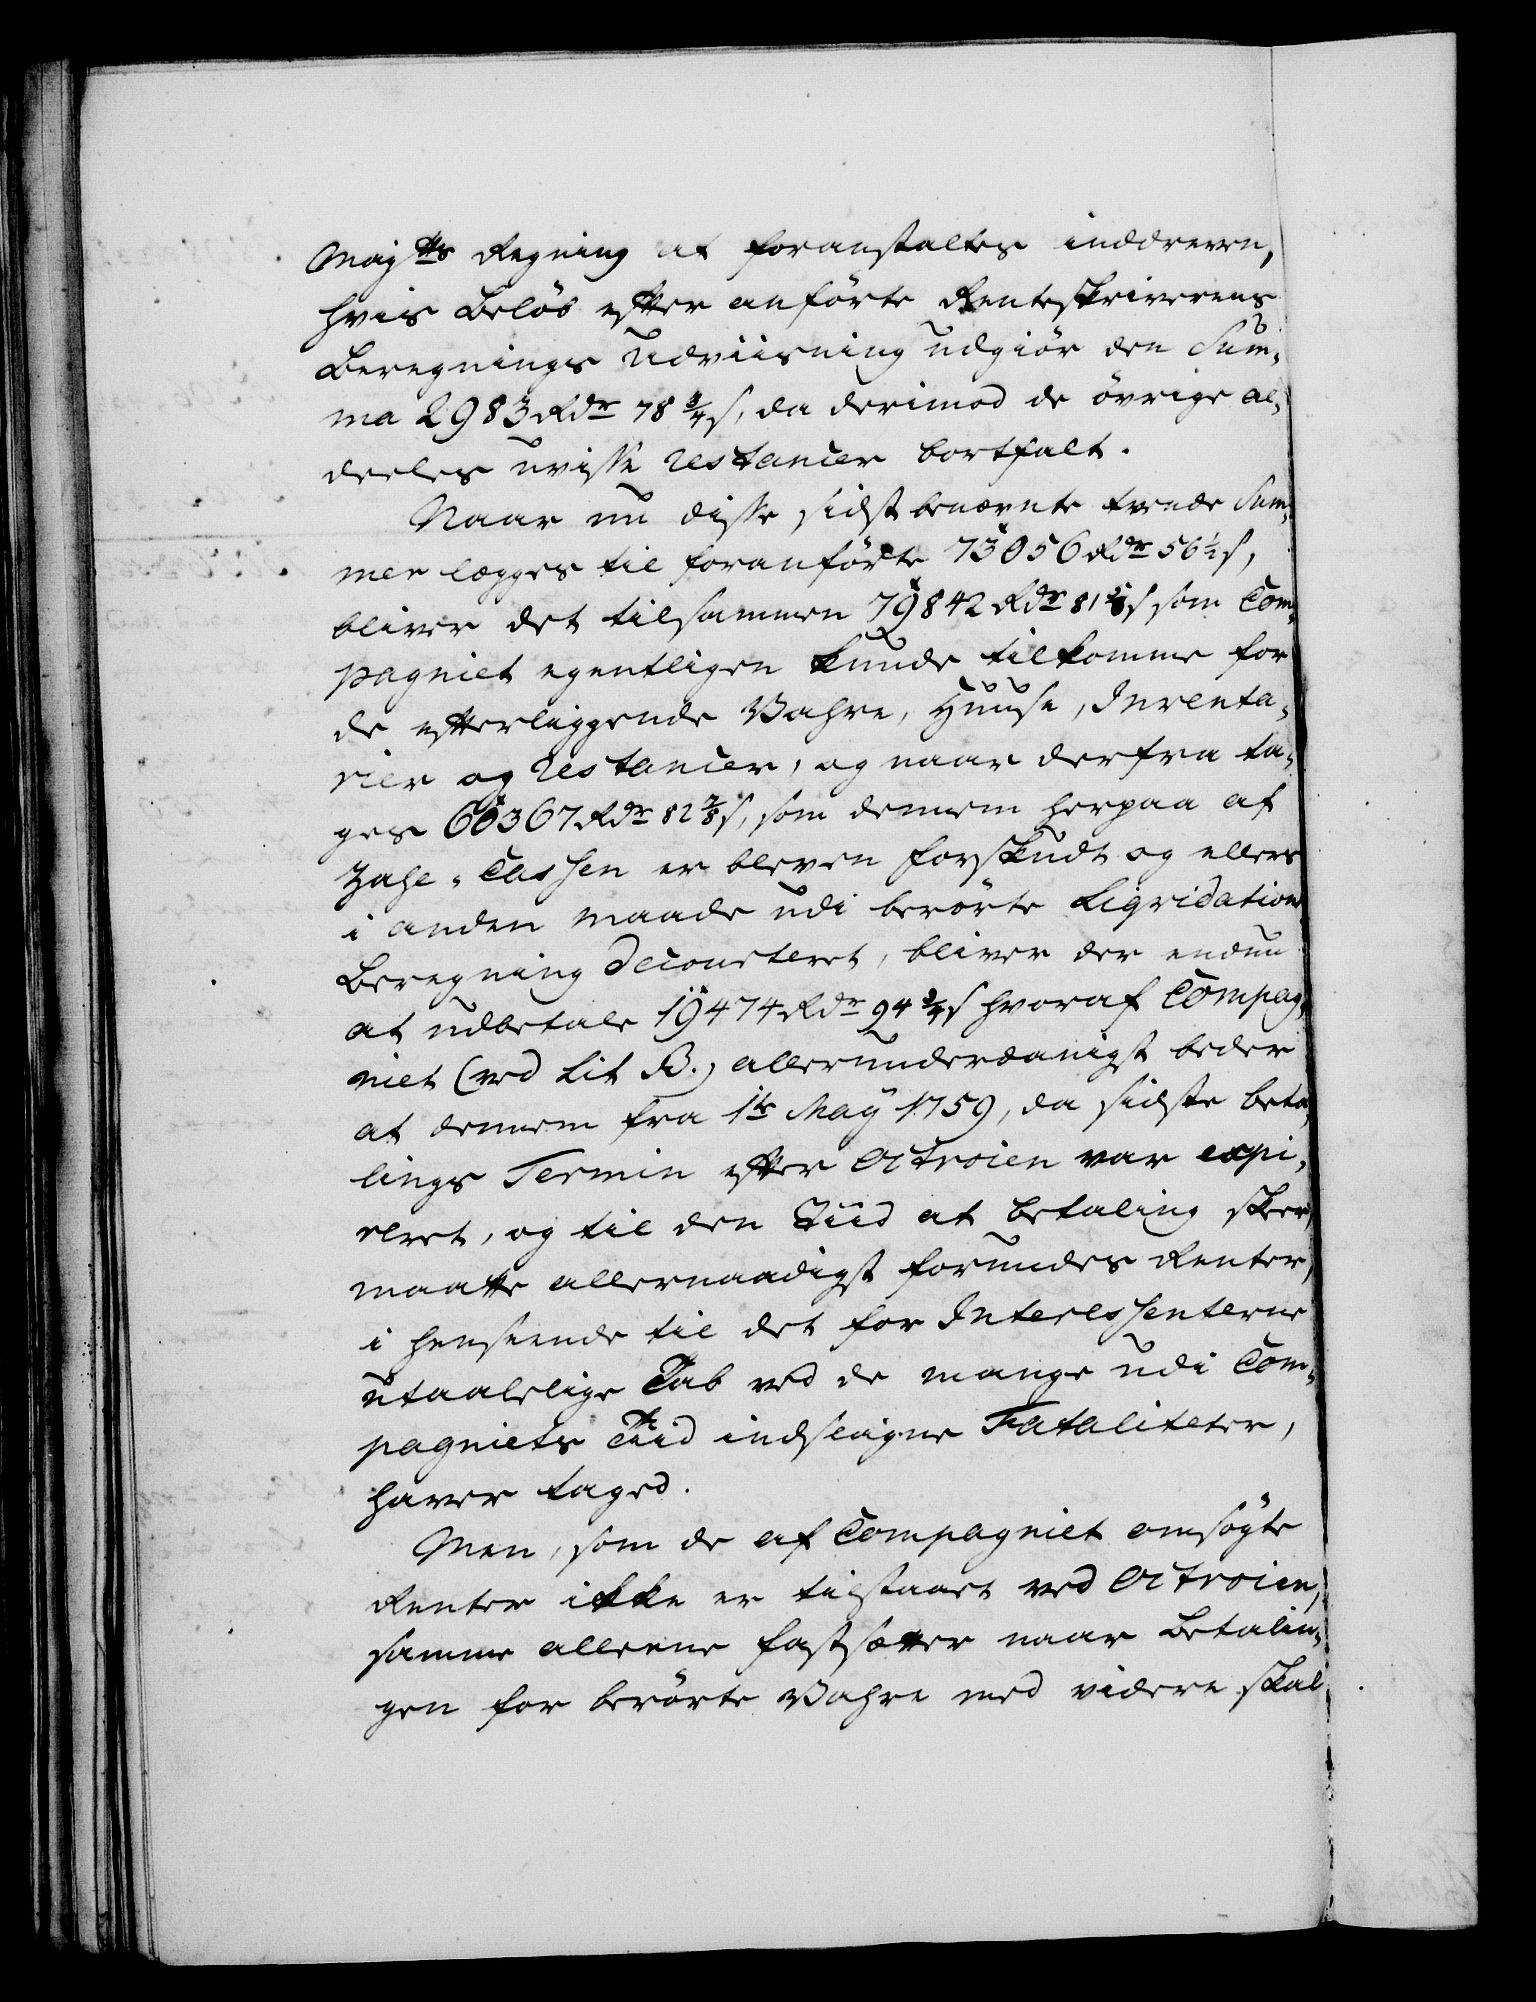 Mayts Regning at foranstaltes inddreven,
hvis Beløb efter anførte Renteskriverens
Beregnings Udviisning udgiør den Sum¬
ma 2983 Rdr 78 3/4 s, da derimod de øvrige al¬
deeles uvisse Restancer bortfalt.
Naar nu disse sidst benævnte tvende Sum¬
mer lægges til foranførte 73056 Rdr 56 1/2 s,
bliver det tilsammen 79842 Rdr 81 5/8 s som Com¬
pagniet egentligen kunde tilkomme for
de efterliggende Vahre, Huuse, Inventa¬
rier og Restancer, og naar derfra ta¬
ges 60367 Rdr 82 7/8 s, som dennem herpaa af
Zahl-Cassen er bleven forskudt og ellers
i anden maade udi berørte Liqvidations
Beregning decourteret, bliver der endnu
at udbetale 19474 Rdr 94 3/4 s hvoraf Compag¬
niet (ved Lit B.) allerunderdanigst beder
at dennem fra 1te May 1759, da sidste beta¬
lings Termin efter Octroien var expi¬
reret, og til den Tiid at betaling skeer,
maatte allernaadigst forundes Renter,
i henseende til det for Interessenterne
utaalelige Tab ved de mange udi Com¬
pagniets Tiid indfaldne Fataliteter,
haver taged.
Men, som de af Compagniet ansøgte
Renter ikke er tilstaaet ved Octroien,
samme alleene fastsætter naar Betalin¬
gen for berørte Vahre med videre skal